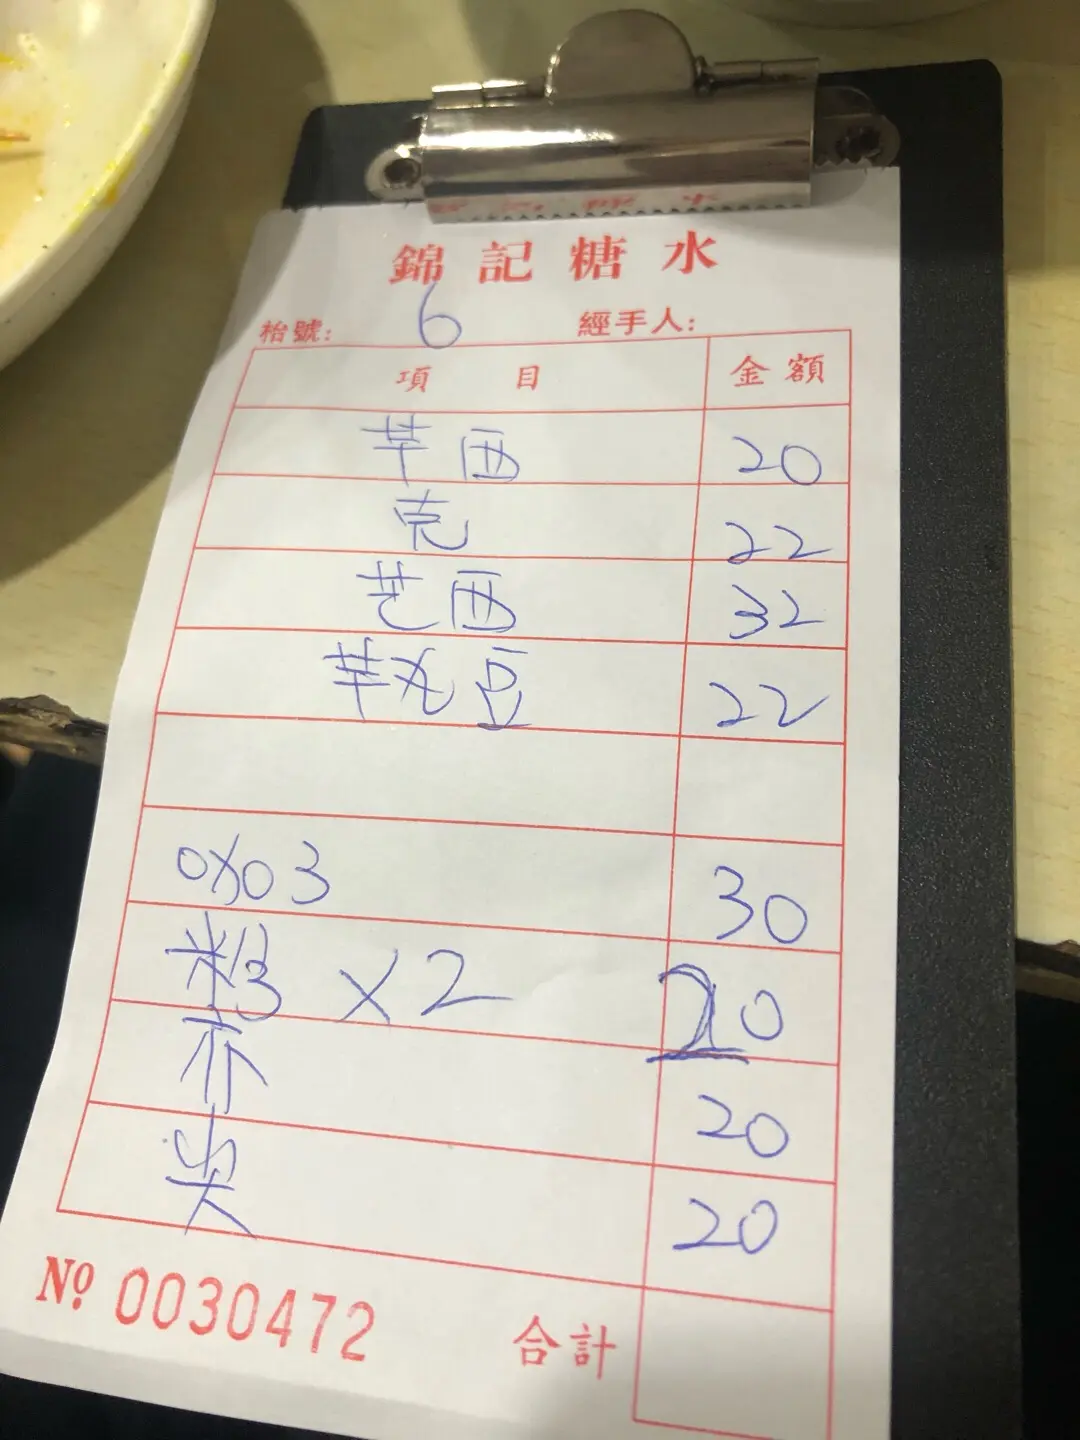 錦記糖水
枱號: 6 經手人:
項目 金額
芋西 20
克 22
芒西 32
芋丸豆 22
0X03 30
X2 20
亦 20
20
Nº 0030472 合計